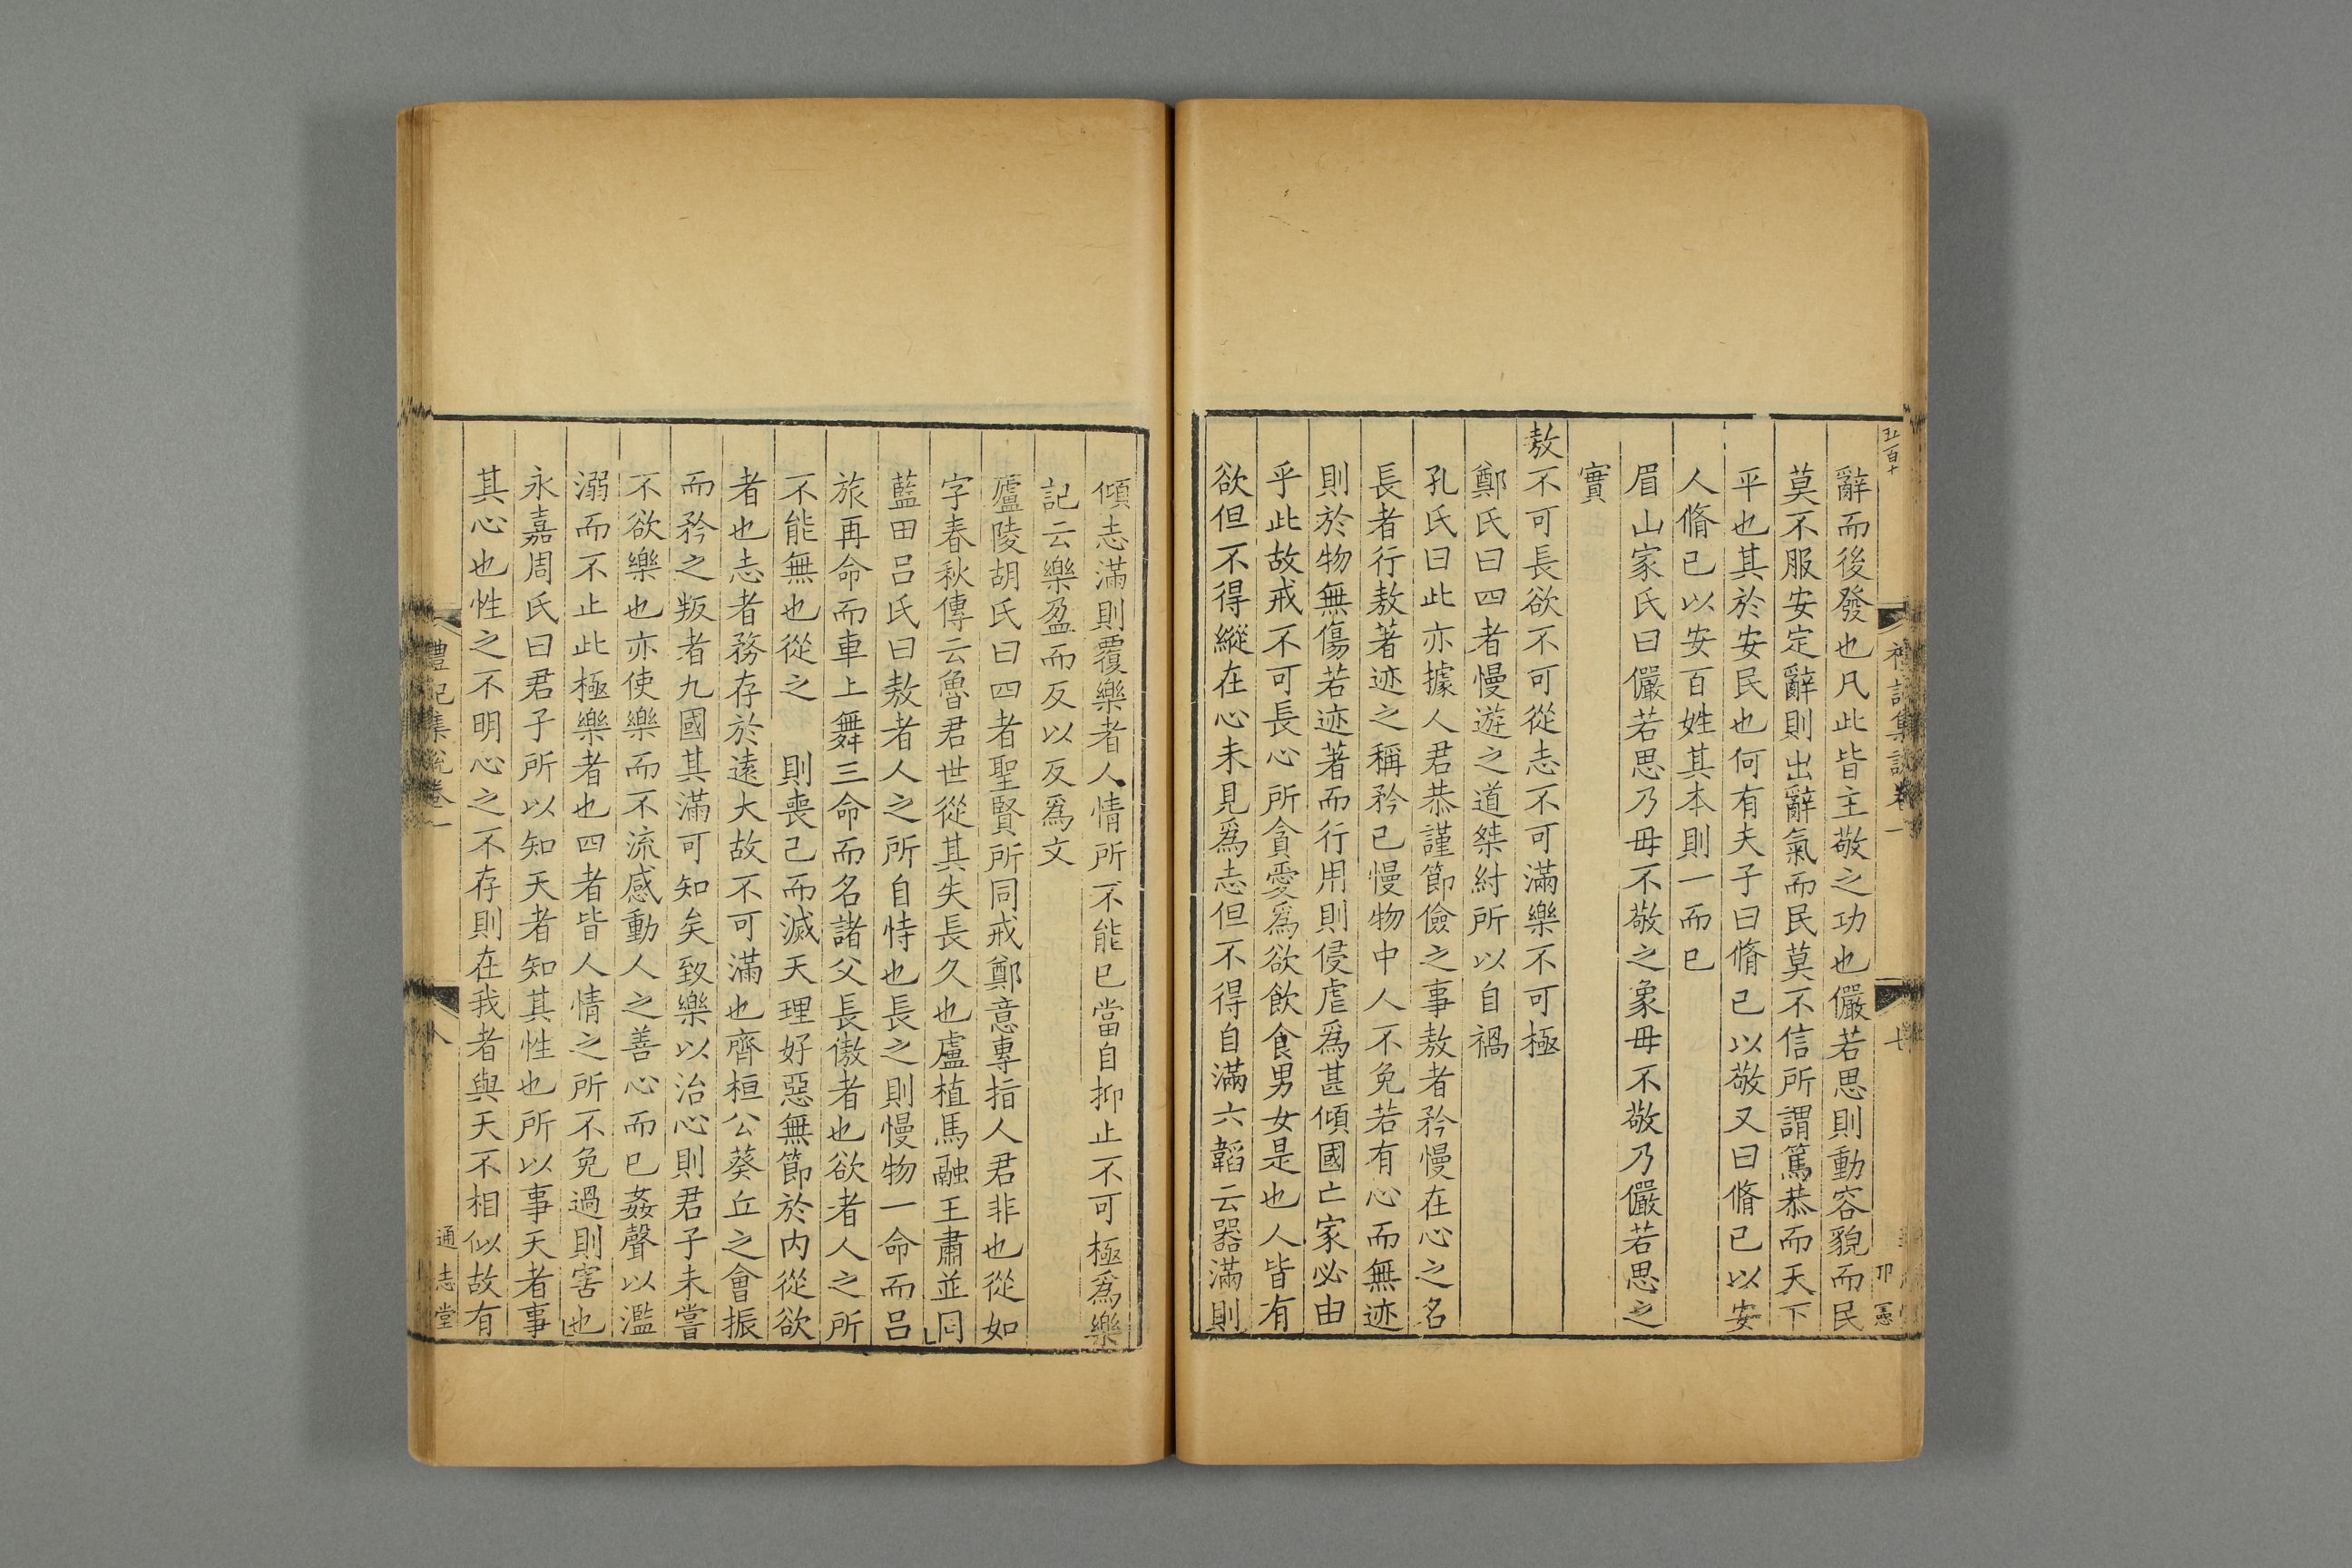 五百十
禮記集說卷一
七
辭而後發也凡此皆主敬之功也儼若思則動容貌而民
莫不服安定辭則出辭氣而民莫不信所謂篤恭而天下
平也其於安民也何有夫子曰脩己以敬又曰脩己以安
人脩己以安百姓其本則一而已
眉山家氏曰儼若思乃毋不敬之象毋不敬乃儼若思之
實
敖不可長欲不可從志不可滿樂不可極
鄭氏曰四者慢遊之道桀紂所以自禍
孔氏曰此亦據人君恭謹節儉之事敖者矜慢在心之名
長者行敖著迹之稱矜己慢物中人不免若有心而無迹
則於物無傷若迹著而行用則侵虐爲甚傾國亡家必由
乎此故戒不可長心所貪愛爲欲飲食男女是也人皆有
欲但不得縱在心未見爲志但不得自滿六韜云器滿則
傾志滿則覆樂者人情所不能已當自抑止不可極爲樂
記云樂盈而反以反爲文
廬陵胡氏曰四者聖賢所同戒鄭意專指人君非也從如
字春秋傳云魯君世從其失長久也盧植馬融王肅並同
藍田呂氏曰敖者人之所自恃也長之則慢物一命而呂
旅再命而車上舞三命而名諸父長傲者也欲者人之所
不能無也從之 則喪己而滅天理好惡無節於內從欲
者也志者務存於遠大故不可滿也齊桓公葵丘之會振
而矜之叛者九國其滿可知矣致樂以治心則君子未嘗
不欲樂也亦使樂而不流感動人之善心而已姦聲以濫
溺而不止此極樂者也四者皆人情之所不免過則害也
永嘉周氏曰君子所以知天者知其性也所以事天者事
其心也性之不明心之不存則在我者與天不相似故有
禮記集說卷一
八
通志堂